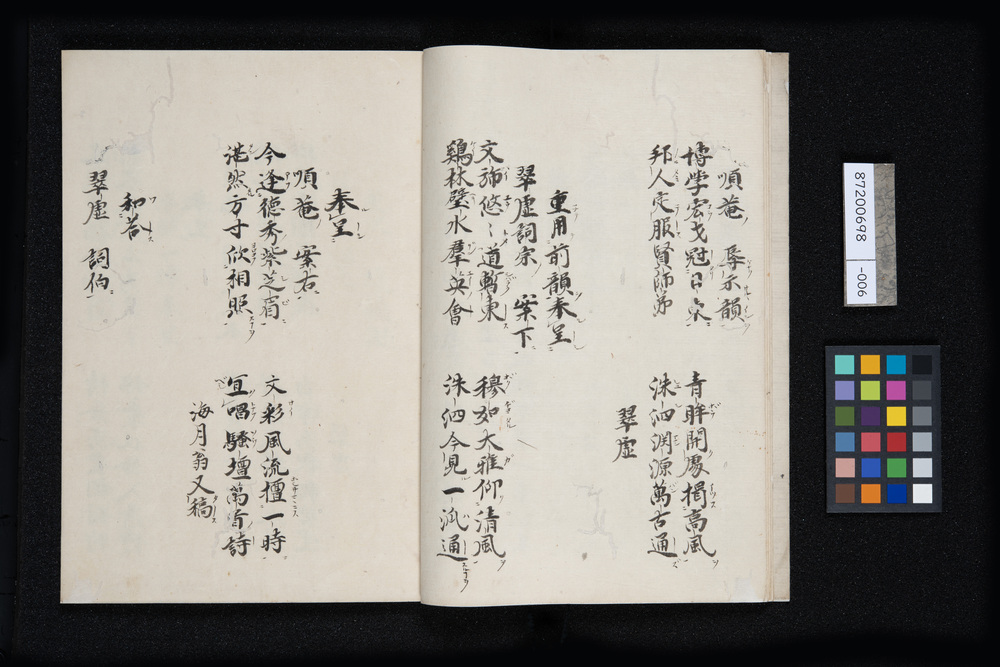 順菴　辱示韻
博学宏才冠日東　青眸開處揖高風
邦人定服賢師弟　洙泗淵源萬古通
翠虚
重用前韻奉呈
翠虚詞宗　案下
文旆悠〻道暫東　穆如大雅仰清風
鷄林壁水羣英會　洙泗今見一派通
奉呈
順菴　案右
今逢德秀紫芝眉　文彩風流擅一時
浩然方寸欣相照　宜唱騒壇萬首詩
海月翁又稿
和荅
翠虚　詞伯
87200698
-006